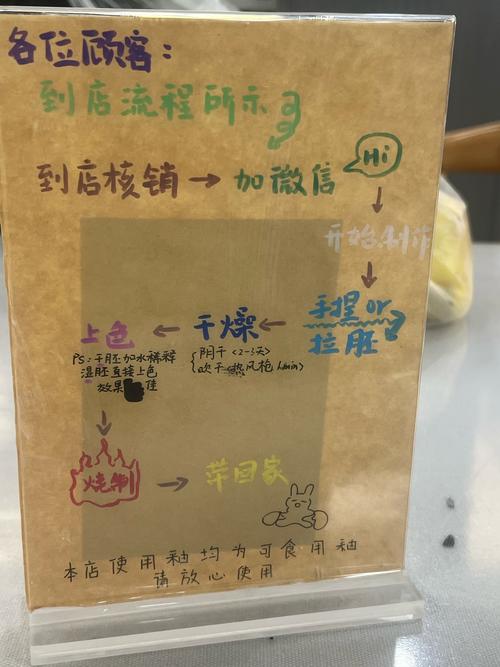 各位顾客：
到店流程所示
到店核销→加微信
Hi
开始制作
手捏or
拉胚
干燥
{阴干<2-3天>
吹干<热风枪 1min>
上色
PS：干胚加水稀释
湿胚直接上色
效果 佳
烧制
→
带回家
本店使用釉均为可食用釉
请放心使用